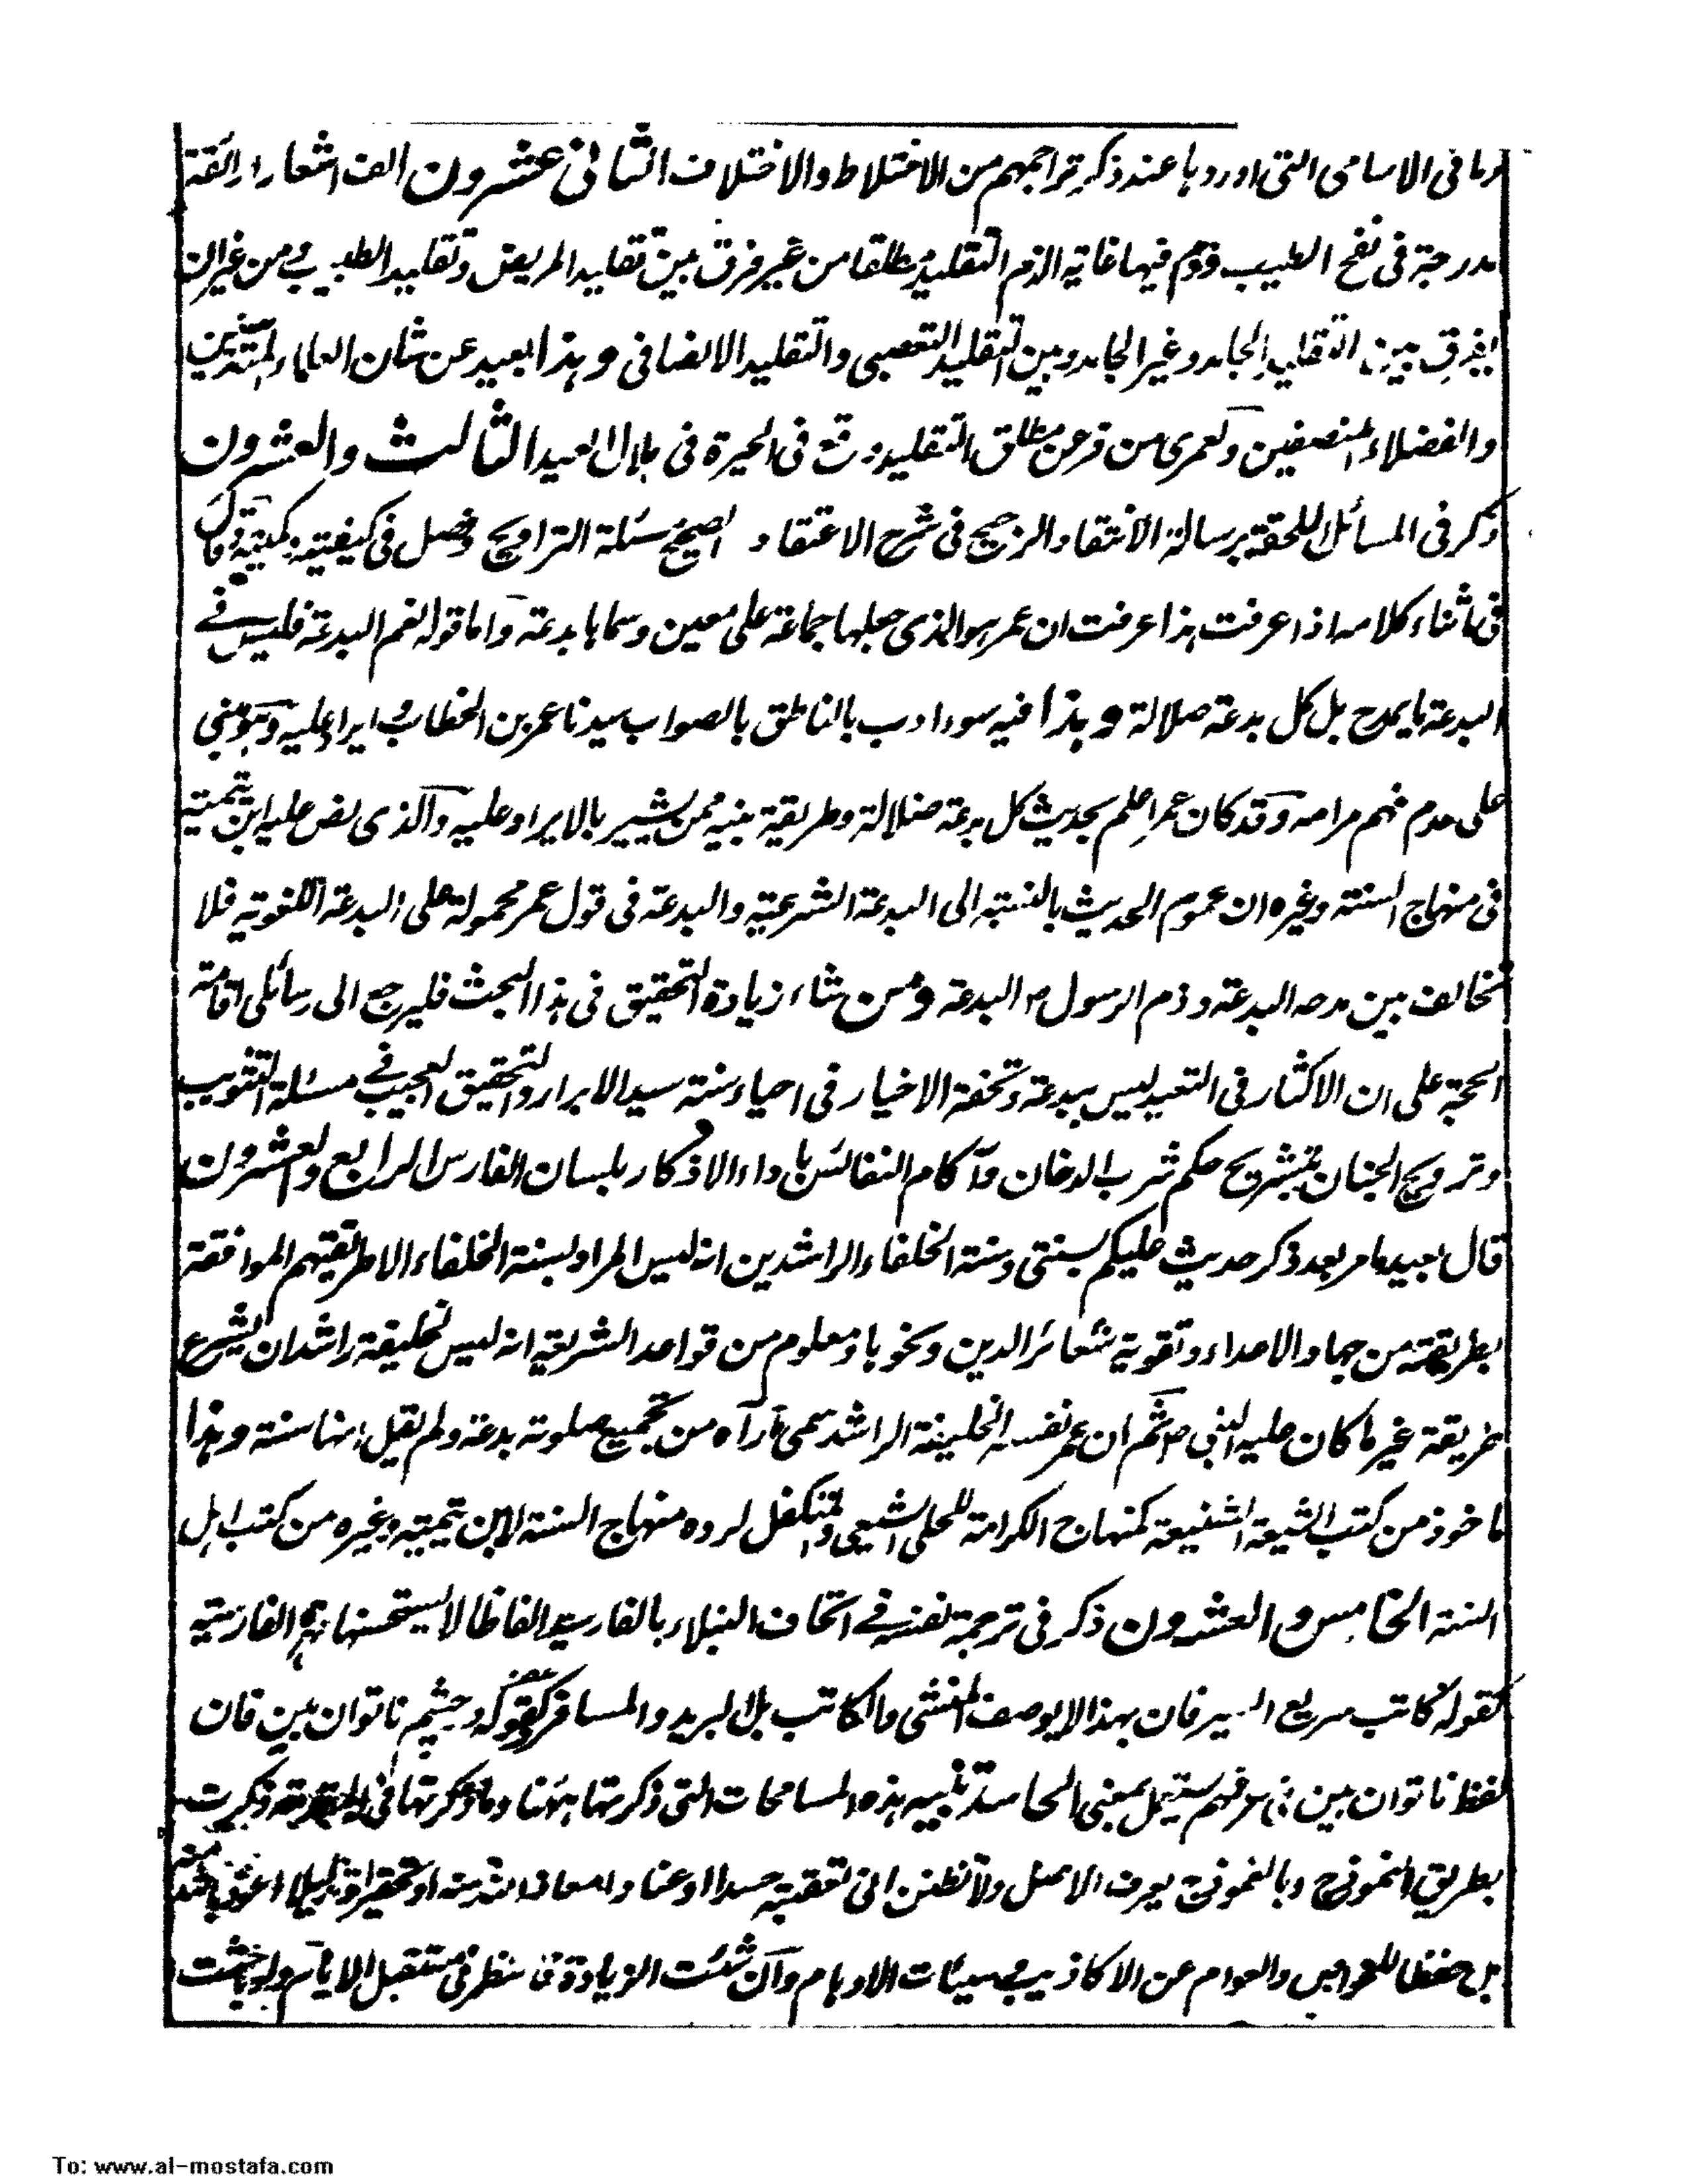 وما فى الاسامى التى اوردها عند ذكر تراجمهم من الاختلاط والاختلاف الثانى عشرون الف اشعارا رائقة
مدرجة فى نفح الطيب وذم فيها غاية الذم التقليد مطلقا من غير فرق بين تقليد المريض وتقليد الطبيب ومن غير ان
يفرق بين التقليد الجامد وغير الجامد وبين التقليد التعصبى والتقليد الانصافى وهذا بعيد عن شان العلماء المتدينين
والفضلاء المنصفين ولعمرى من فر عن مطلق التقليد وقع فى الحيرة فى هلال العيد الثالث والعشرون
ذكر فى المسائل الملحقة برسالة الانتقاد الرجيح فى شرح الاعتقاد الصحيح مسئلة التراويح وفصل فى كيفيته وكميته وقال
فى اثناء كلامه اذا عرفت هذا عرفت ان عمر هو الذى جعلها جماعة على معين وسماها بدعة واما قوله نعم البدعة فليس فى
البدعة ما يمدح بل كل بدعة ضلالة وهذا فيه سوء ادب بالناطق بالصواب سيدنا عمر بن الخطاب وايراد عليه وهو مبنى
على عدم فهم مرامه وقد كان عمر اعلم بحديث كل بدعة ضلالة وطريقة نبيه ممن يشير بالايراد عليه والذى نص عليه ابن تيمية
فى منهاج السنة وغيره ان عموم الحديث بالنسبة الى البدعة الشرعية والبدعة فى قول عمر محمولة على البدعة اللغوية فلا
تخالف بين مدحه البدعة وذم الرسول م البدعة ومن شاء زيادة التحقيق فى هذا البحث فليرجع الى رسائلى اقامة
الحجة على ان الاكثار فى التعبد ليس ببدعة وتحفة الاخيار فى احياء سنة سيد الابرار والتحقيق العجيب فى مسئلة التثويب
وترويح الجنان بتشريح حكم شرب الدخان وآكام النفائس باداء الاذكار بلسان الفارس الرابع والعشرون
قال بعيد ما مر بعد ذكر حديث عليكم بسنتى وسنة الخلفاء الراشدين انه ليس المراد بسنة الخلفاء الا طريقتهم الموافقة
بطريقته من جهاد الاعداء وتقوية شعائر الدين ونحوها ومعلوم من قواعد الشريعة انه ليس لخليفة راشد ان يشرع
طريقة غير ما كان عليه النبى ص ثم ان عمر نفسه الخليفة الراشد سمى ما رآه من تجميع صلوته بدعة ولم يقل انها سنة وهذا
ماخوذ من كتب الشيعة الشنيعة كمنهاج الكرامة للحلى الشيعى والمتكفل لرده منهاج السنة لابن تيمية وغيره من كتب اهل
السنة الخامس والعشرون ذكر فى ترجمة نفسه فى اتحاف النبلاء بالفارسية الفاظا لا يستحسنها مهرة الفارسية
كقوله كاتب سريع السير فان بهذا لا يوصف المنشى والكاتب بل البريد والمسافر وكقوله در چشم ناتوان بين فان
لفظ ناتوان بين فى عرفهم يستعمل بمعنى الحاسد تنبيه هذه المسامحات التى ذكرتها ههنا وما ذكرتها فى المقدمة ذكرت
بطريق النموذج وبالنموذج يعرف الاصل ولا تظنن انى تعقبته حسدا او عنادا معاذ الله منه او تحقيرا وتذليلا اعوذ بالله منه
بل حفظا للخواص والعوام عن الاكاذيب وسيئات الاوهام وان شئت الزيادة فانتظر فى مستقبل الايام
To: www.al-mostafa.com